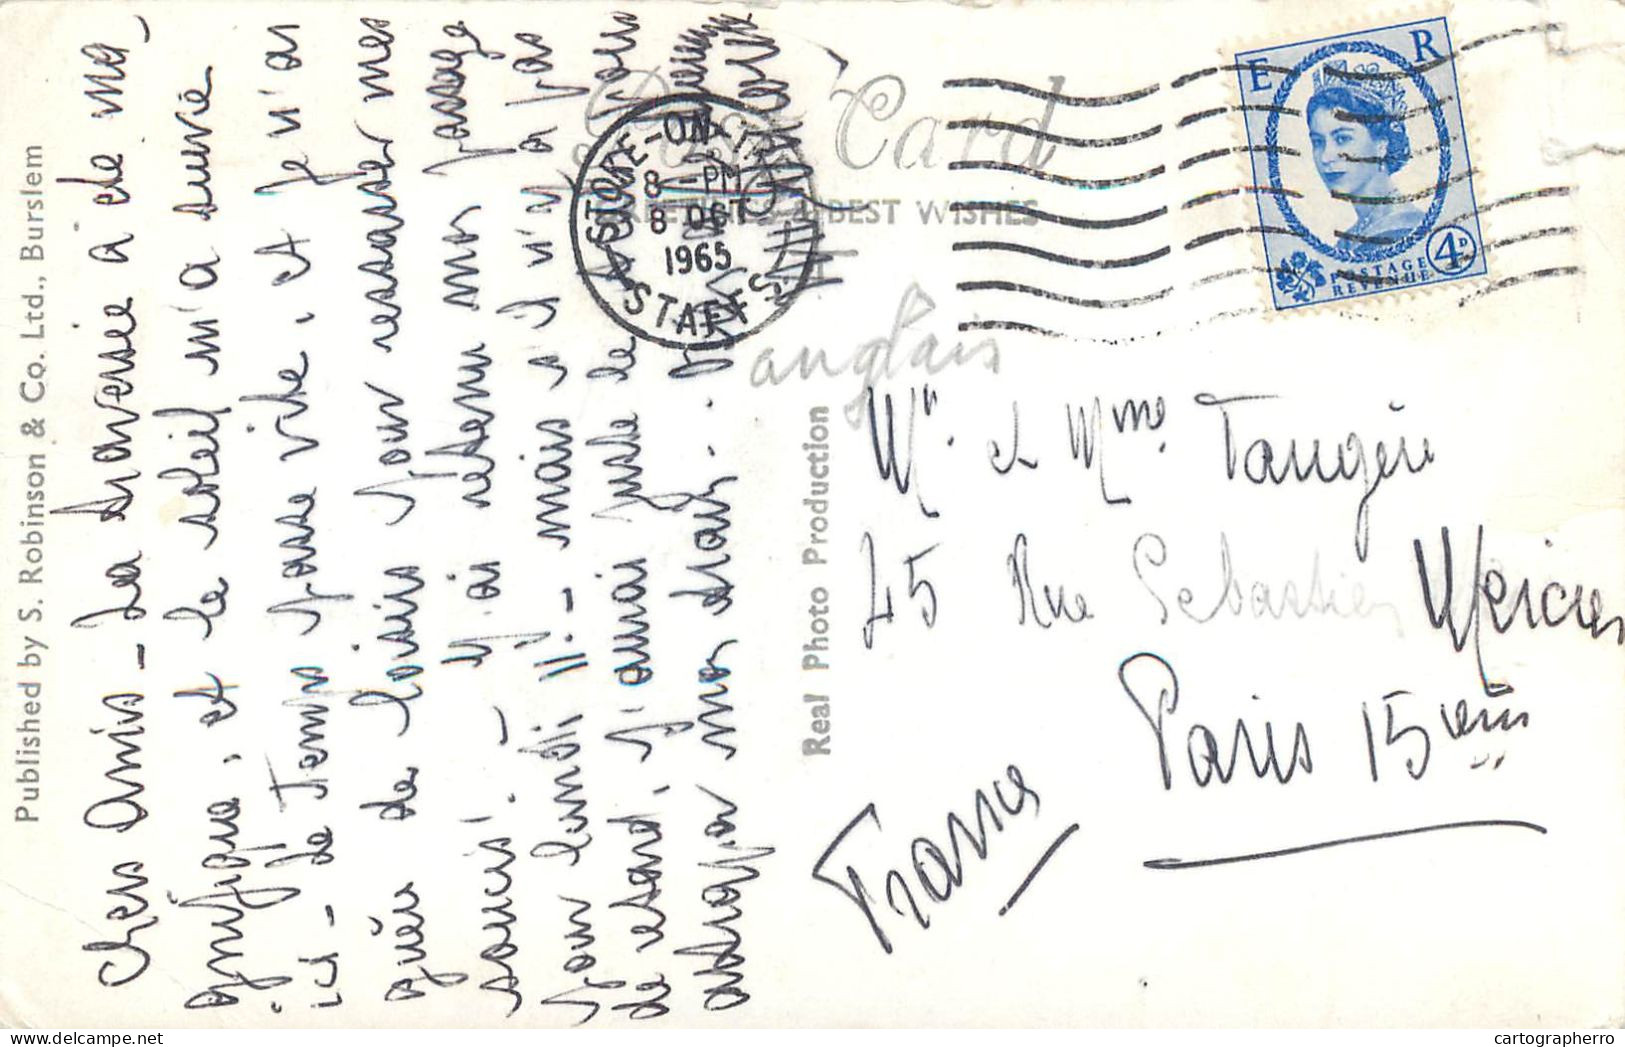 Published by S. Robinson & Co. Ltd., Burslem
Chers Amis - La traversée a été ma-
gnifique, et le soleil m'a suivie
jusqu'ici - le Temps passe vite, et je n'ai
guère de loisirs pour ressasser mes
soucis! - J'ai retenu mon passage
pour lundi 11 - mais s'il n'a pas
de retard, j'aurai juste le temps
attraper mon train.
Post Card
GREETINGS & BEST WISHES
STOKE-ON-TRENT
8 - PM
8 OCT
1965
STAFFS.
E R
POSTAGE
REVENUE
4D
anglais
Real Photo Production
Mr. et Mme. Taugère
45 Rue Sébastien Mercier
Paris 15ème
France
cartographerro